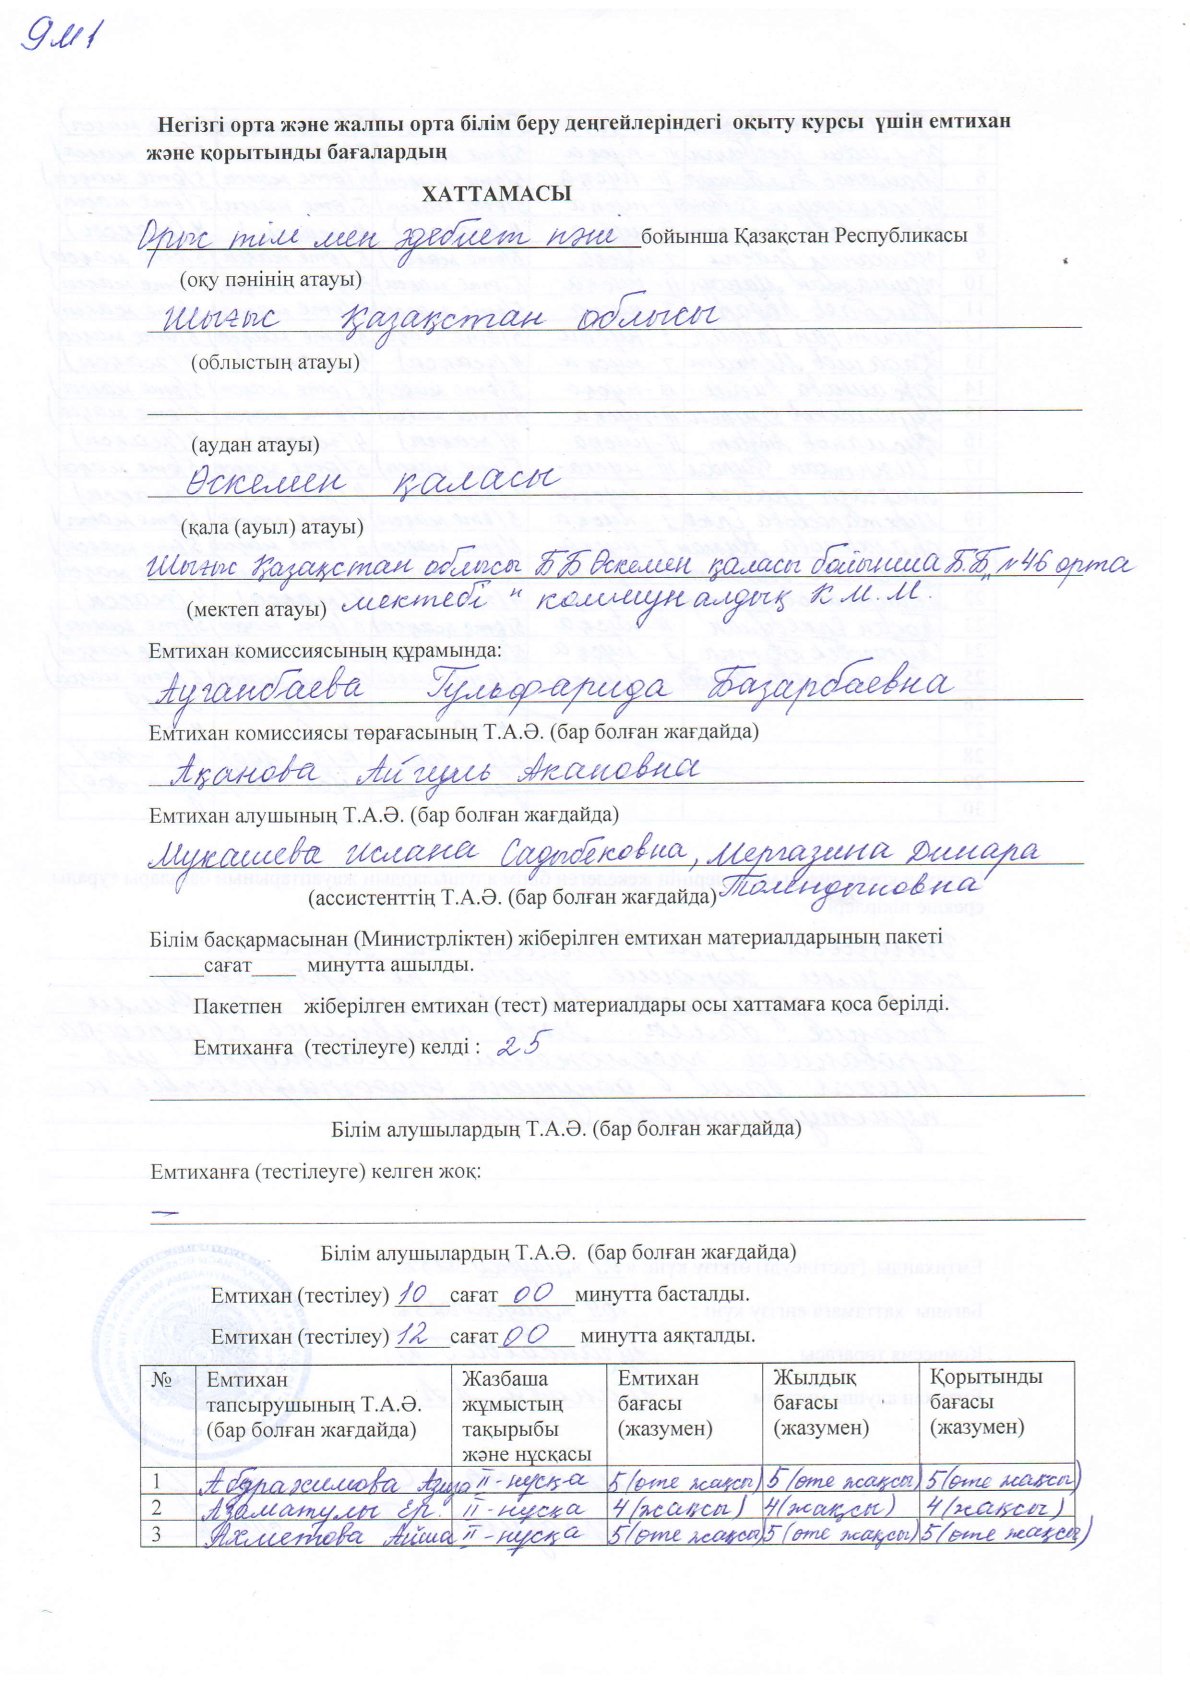 9М1
Негізгі орта және жалпы орта білім беру деңгейлеріндегі оқыту курсы үшін емтихан
және қорытынды бағалардың
ХАТТАМАСЫ
Орыс тілі мен әдебиет пәні бойынша Қазақстан Республикасы
(оқу пәнінің атауы)
Шығыс Қазақстан облысы
(облыстың атауы)
(аудан атауы)
Өскемен қаласы
(қала (ауыл) атауы)
Шығыс Қазақстан облысы ББ Өскемен қаласы бойынша Б.Б. "№46 орта
(мектеп атауы) мектебі" коммуналдық К.М.М.
Емтихан комиссиясының құрамында:
Ауганбаева Гульфарида Базарбаевна
Емтихан комиссиясы төрағасының Т.А.Ә. (бар болған жағдайда)
Ақанова Айгуль Акановна
Емтихан алушының Т.А.Ә. (бар болған жағдайда)
МукашеваИслана Садыбековна, Мергазина Динара
(ассистенттің Т.А.Ә. (бар болған жағдайда) Толендыновна
Білім басқармасынан (Министрліктен) жіберілген емтихан материалдарының пакеті
_____сағат____ минутта ашылды.
Пакетпен жіберілген емтихан (тест) материалдары осы хаттамаға қоса берілді.
Емтиханға (тестілеуге) келді : 25
Білім алушылардың Т.А.Ә. (бар болған жағдайда)
Емтиханға (тестілеуге) келген жоқ:
—
Білім алушылардың Т.А.Ә. (бар болған жағдайда)
Емтихан (тестілеу) 10 сағат 00 минутта басталды.
Емтихан (тестілеу) 12 сағат 00 минутта аяқталды.
№ Емтихан тапсырушының Т.А.Ә. (бар болған жағдайда) Жазбаша жұмыстың тақырыбы және нұсқасы Емтихан бағасы (жазумен) Жылдық бағасы (жазумен) Қорытынды бағасы (жазумен)
1 Абдрахимова Азиза II-нұсқа 5 (өте жақсы) 5 (өте жақсы) 5 (өте жақсы)
2 Азаматулы Ер. II-нұсқа 4 (жақсы) 4 (жақсы) 4 (жақсы)
3 Ахметова Айша II-нұсқа 5 (өте жақсы) 5 (өте жақсы) 5 (өте жақсы)